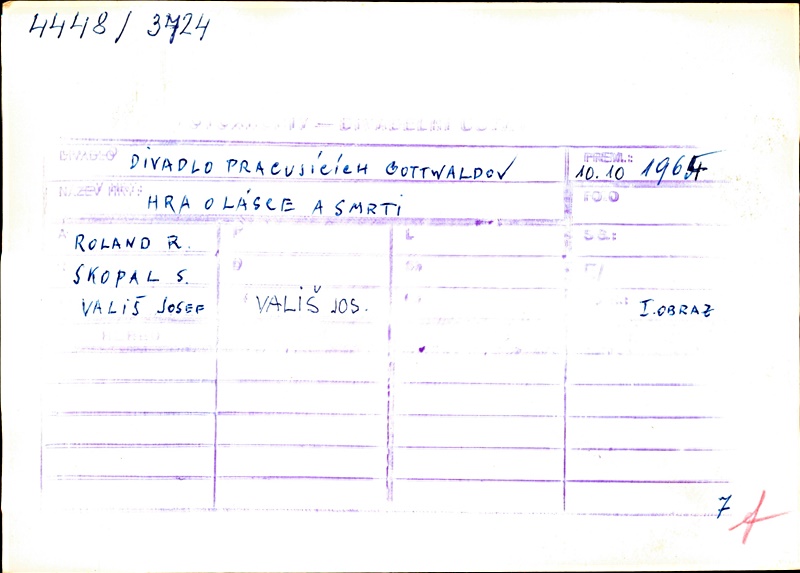 4448/3724
DIVADLO PRACUJÍCÍCH GOTTWALDOV
10.10 1964
HRA O LÁSCE A SMRTI
FOTO
ROLAND R.
SKOPAL S.
VALIŠ JOSEF VALIŠ JOS. I. OBRAZ
7